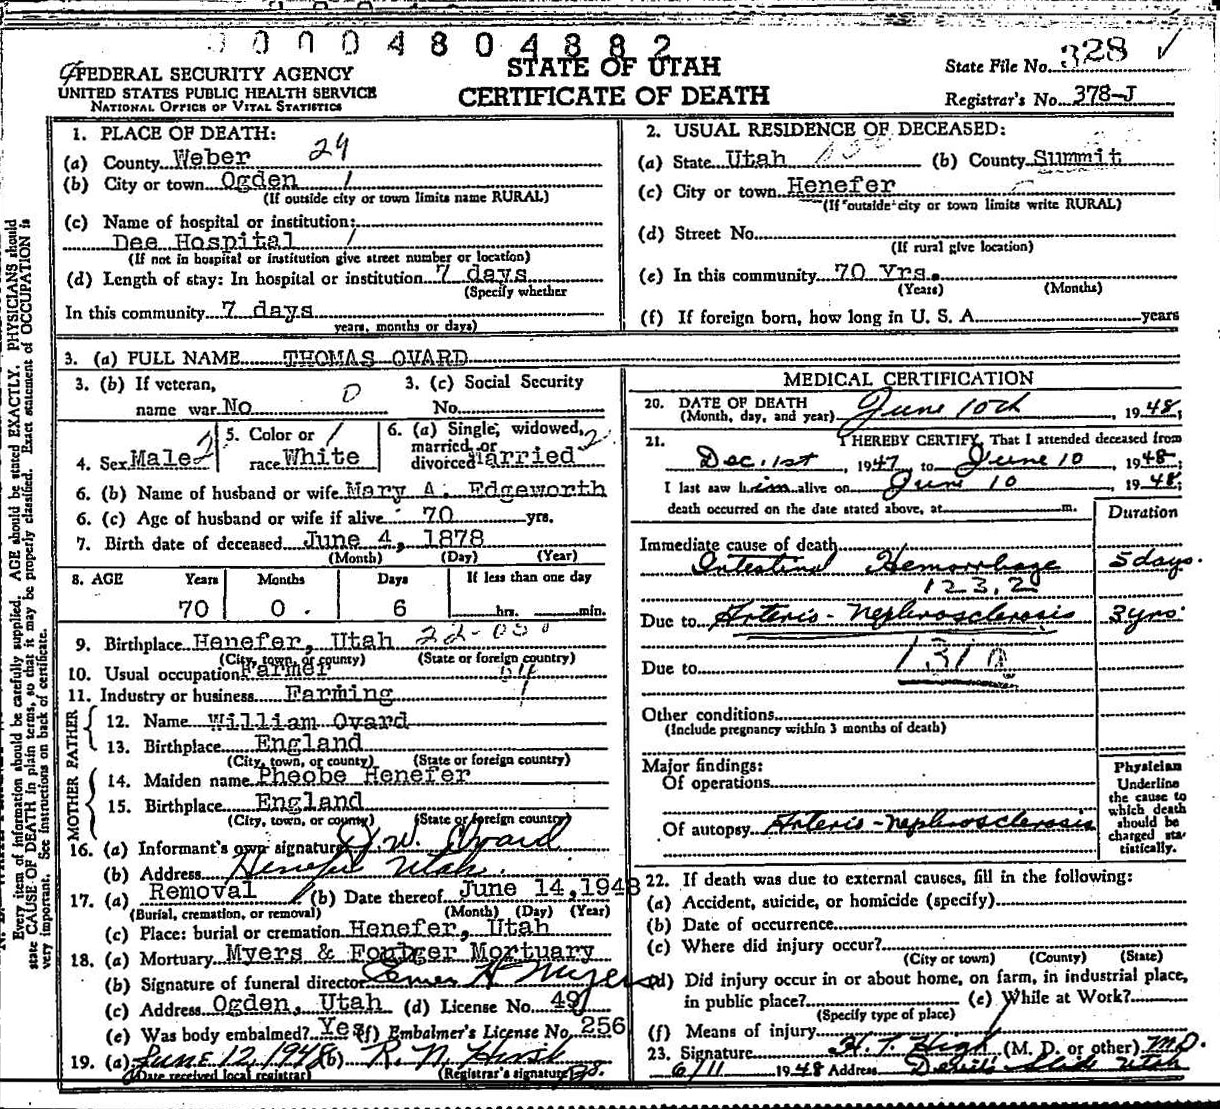 0004804882
FEDERAL SECURITY AGENCY
UNITED STATES PUBLIC HEALTH SERVICE
NATIONAL OFFICE OF VITAL STATISTICS
STATE OF UTAH
CERTIFICATE OF DEATH
State File No. 328 ✓
Registrar's No. 378-J
1. PLACE OF DEATH:
(a) County Weber 29
(b) City or town Ogden 1
(If outside city or town limits name RURAL)
(c) Name of hospital or institution:
Dee Hospital 1
(If not in hospital or institution give street number or location)
(d) Length of stay: In hospital or institution 7 days
(Specify whether
In this community 7 days
years, months or days)
2. USUAL RESIDENCE OF DECEASED:
(a) State Utah (b) County Summit
(c) City or town Henefer
(If outside city or town limits write RURAL)
(d) Street No.
(If rural give location)
(e) In this community 70 Yrs.
(Years) (Months)
(f) If foreign born, how long in U. S. A. years
3. (a) FULL NAME THOMAS OVARD
3. (b) If veteran,
name war No 0
3. (c) Social Security
No.
4. Sex Male 2
5. Color or 1
race White
6. (a) Single, widowed, 2
married, or
divorced Married
6. (b) Name of husband or wife Mary A. Edgeworth
6. (c) Age of husband or wife if alive 70 yrs.
7. Birth date of deceased June 4, 1878
(Month) (Day) (Year)
8. AGE Years Months Days If less than one day
70 0 6 hrs. min.
9. Birthplace Henefer, Utah
(City, town, or county) (State or foreign country)
10. Usual occupation Farmer
11. Industry or business Farming 1
FATHER
12. Name William Ovard
13. Birthplace England
(City, town, or county) (State or foreign country)
MOTHER
14. Maiden name Pheobe Henefer
15. Birthplace England
(City, town, or county) (State or foreign country)
16. (a) Informant's own signature J. W. Ovard
(b) Address Henefer Utah.
17. (a) Removal (b) Date thereof June 14, 1948
(Burial, cremation, or removal) (Month) (Day) (Year)
(c) Place: burial or cremation Henefer, Utah
18. (a) Mortuary Myers & Foulger Mortuary
(b) Signature of funeral director Elmer H Myers
(c) Address Ogden, Utah (d) License No. 49
(e) Was body embalmed? Yes (f) Embalmer's License No. 256
19. (a) June 12, 1948 (b) R. N. Hirst
(Date received local registrar) (Registrar's signature)
MEDICAL CERTIFICATION
20. DATE OF DEATH
(Month, day, and year) June 10th, 1948;
21. I HEREBY CERTIFY, That I attended deceased from
Dec. 1st, 1947, to June 10, 1948;
I last saw him alive on June 10 1948;
death occurred on the date stated above, at m.
Duration
Immediate cause of death
Intestinal Hemorrhage 5 days.
123.2
Due to Arterio-nephrosclerosis 3 yrs.
Due to 131a
Other conditions
(Include pregnancy within 3 months of death)
Major findings:
Of operations
Of autopsy Arterio-nephrosclerosis
Physician
Underline
the cause to
which death
should be
charged sta
tistically.
22. If death was due to external causes, fill in the following:
(a) Accident, suicide, or homicide (specify)
(b) Date of occurrence
(c) Where did injury occur?
(City or town) (County) (State)
(d) Did injury occur in or about home, on farm, in industrial place,
in public place? (e) While at Work?
(Specify type of place)
(f) Means of injury
23. Signature H. T. High (M. D. or other) M.D.
6/11 1948 Address Devil's Slide Utah
Every item of information should be carefully supplied. AGE should be stated EXACTLY. PHYSICIANS should
state CAUSE OF DEATH in plain terms, so that it may be properly classified. Exact statement of OCCUPATION is
very important. See instructions on back of certificate.